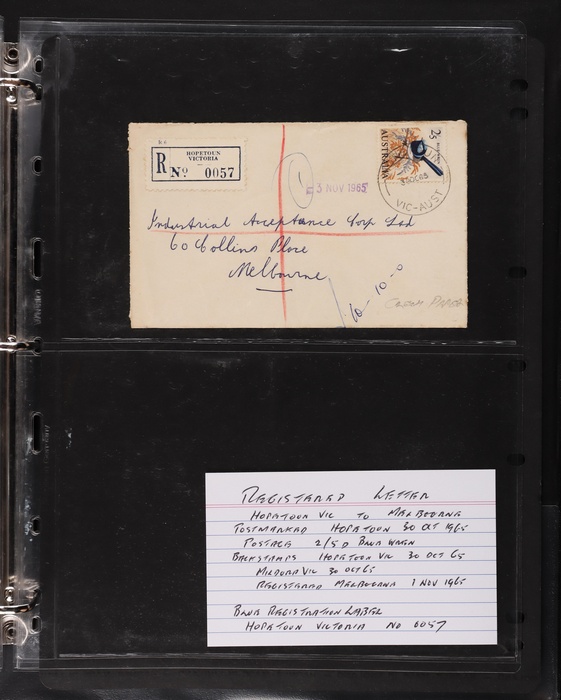 HOPETOUN
VICTORIA
R No 0057
2/5
AUSTRALIA
30OC65
VIC-AUST
1
3 NOV 1965
Industrial Acceptance Corp Ltd
60 Collins Place
Melbourne
10-0
CREAM PAPER
REGISTERED LETTER
HOPETOUN VIC TO MELBOURNE
POSTMARKED HOPETOUN 30 OCT 1965
POSTAGE 2/5D BLUE WREN
BACKSTAMPS HOPETOUN VIC 30 OCT 65
MILDURA VIC 30 OCT 65
REGISTERED MELBOURNE 1 NOV 1965
BLUE REGISTRATION LABEL
HOPETOUN VICTORIA NO 0057